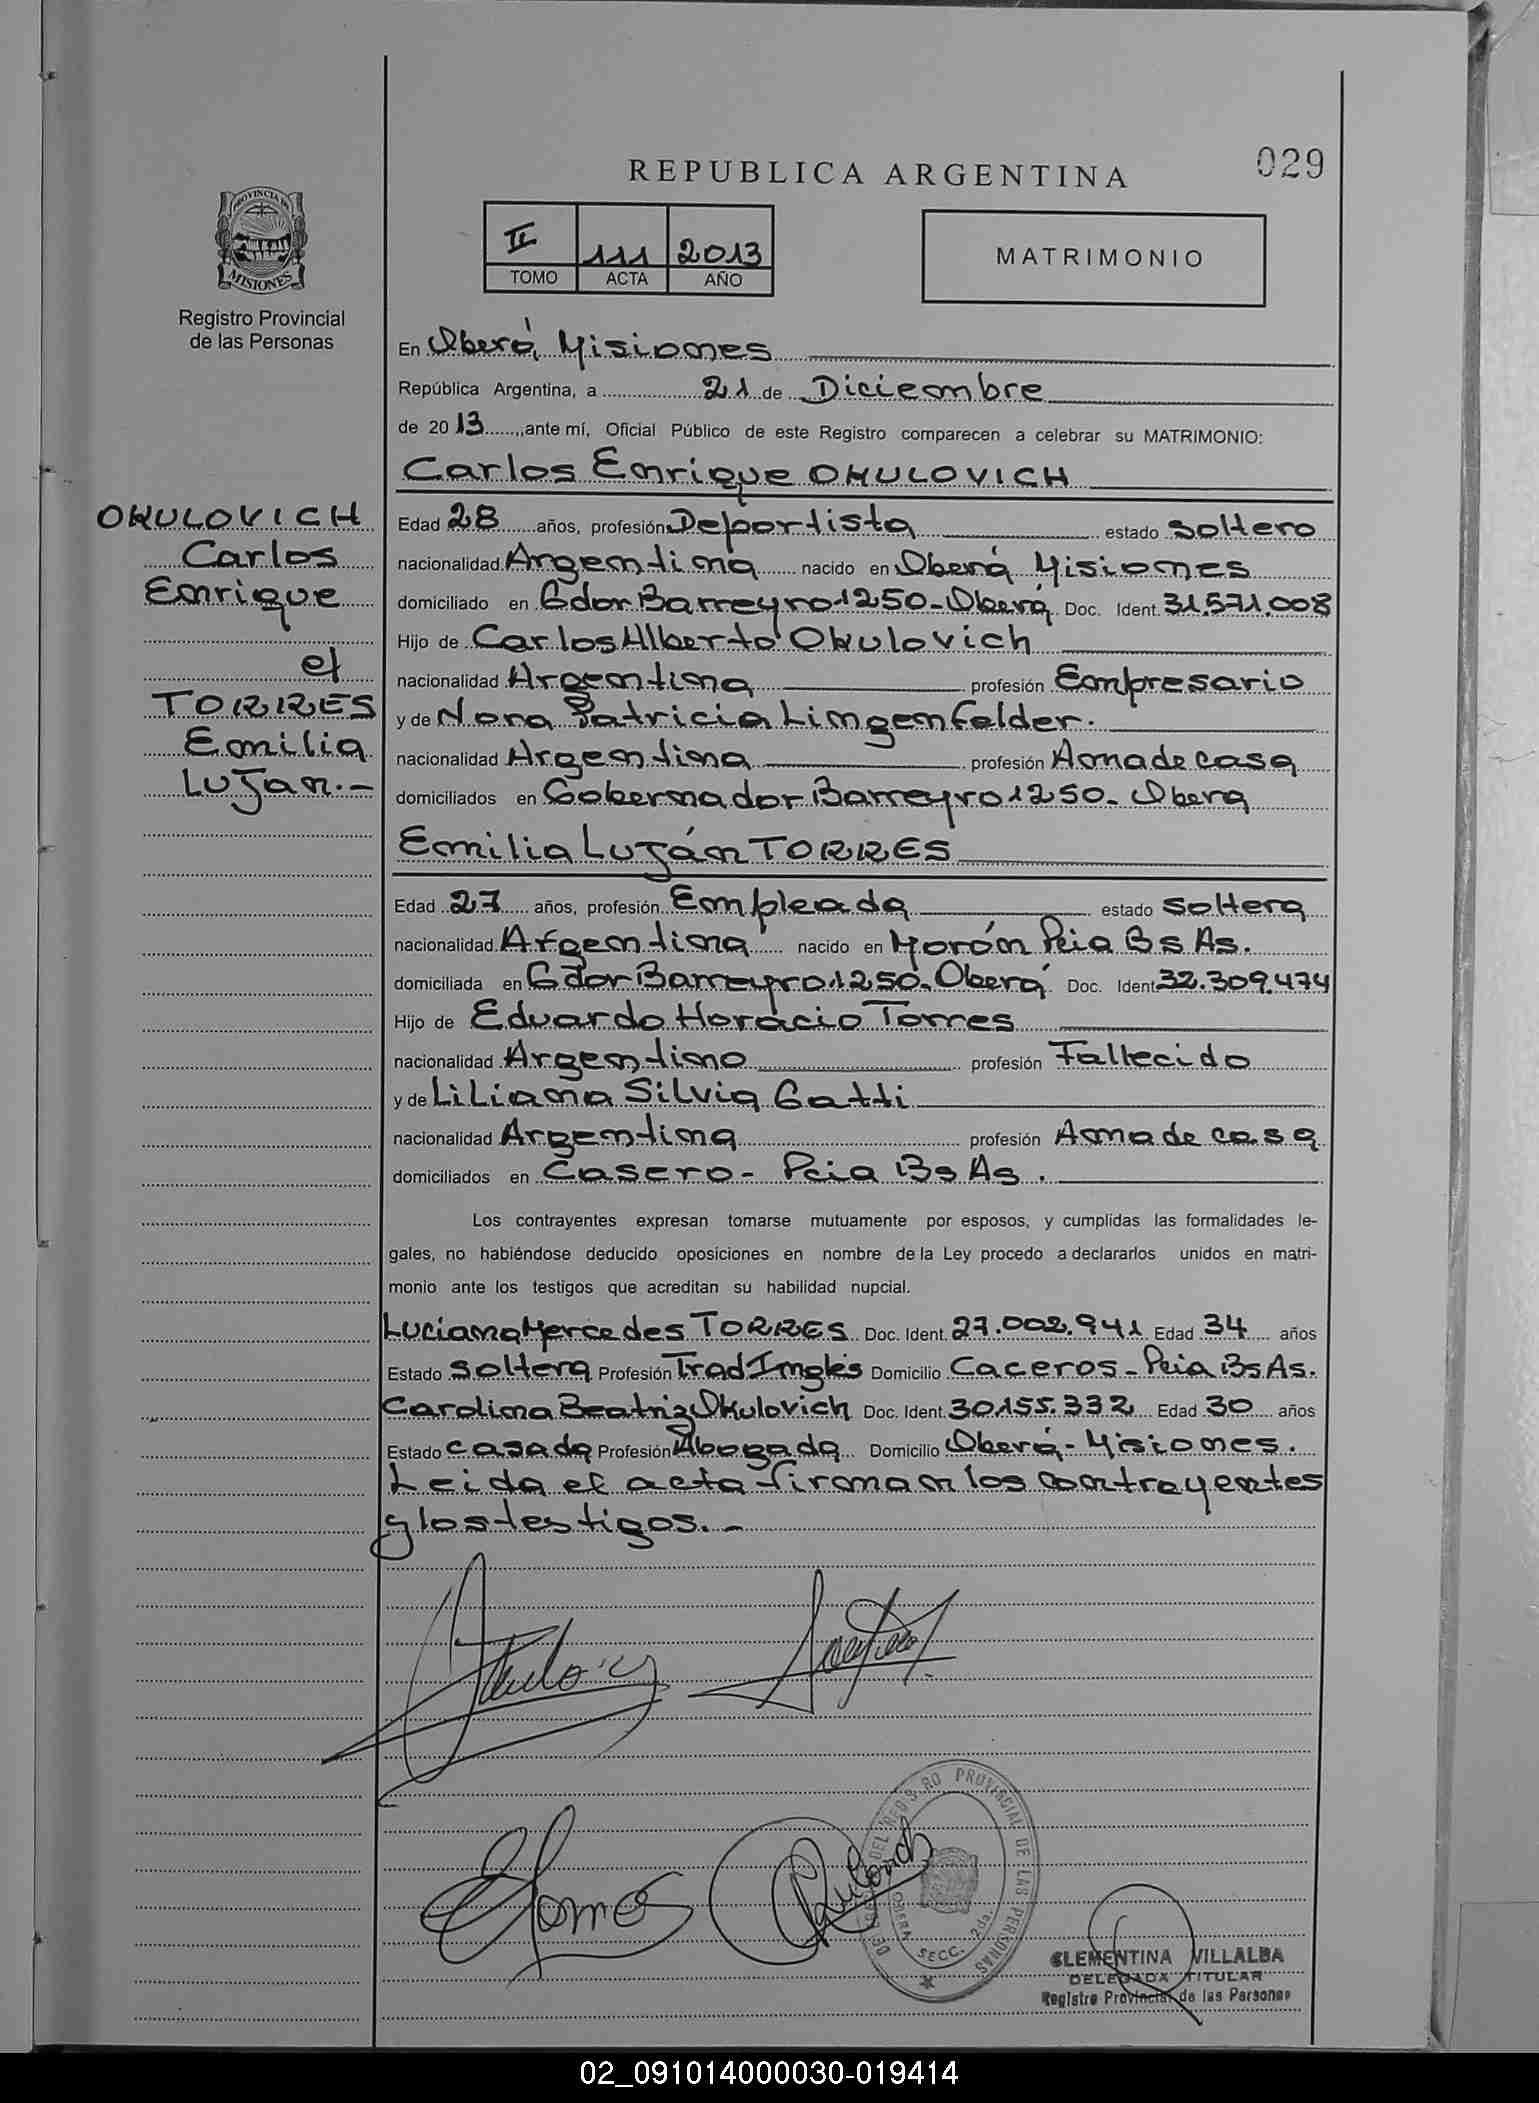 029
REPUBLICA ARGENTINA
II 111 2013
TOMO ACTA AÑO
MATRIMONIO
PROVINCIA DE
MISIONES
Registro Provincial
de las Personas
OKULOVICH
Carlos
Enrique
et
TORRES
Emilia
Lujan.-
En Oberá, Misiones
República Argentina, a 21 de Diciembre
de 2013 ante mí, Oficial Público de este Registro comparecen a celebrar su MATRIMONIO:
Carlos Enrique OKULOVICH
Edad 28 años, profesión Deportista estado soltero
nacionalidad Argentina nacido en Oberá Misiones
domiciliado en Gdor Barreyro 1250-Oberá Doc. Ident. 31.571.008
Hijo de Carlos Alberto Okulovich
nacionalidad Argentina profesión Empresario
y de Nora Patricia Lingenfelder.
nacionalidad Argentina profesión Ama de casa
domiciliados en Gobernador Barreyro 1250- Obera
Emilia Luján TORRES
Edad 27 años, profesión Empleada estado soltera
nacionalidad Argentina nacido en Morón Pcia Bs As.
domiciliada en Gdor Barreyro 1250-Oberá Doc. Ident. 32.309.474
Hijo de Eduardo Horacio Torres
nacionalidad Argentino profesión Fallecido
y de Liliana Silvia Gatti
nacionalidad Argentina profesión Ama de casa
domiciliados en Casero- Pcia Bs As.
Los contrayentes expresan tomarse mutuamente por esposos, y cumplidas las formalidades le-
gales, no habiéndose deducido oposiciones en nombre de la Ley procedo a declararlos unidos en matri-
monio ante los testigos que acreditan su habilidad nupcial.
Luciana Mercedes TORRES Doc. Ident. 27.002.941 Edad 34 años
Estado soltera Profesión Trad Inglés Domicilio Caceros-Pcia Bs As.
Carolina Beatriz Okulovich Doc. Ident. 30.155.332 Edad 30 años
Estado casada Profesión Abogada Domicilio Oberá-Misiones.
Leida el acta firman los contrayentes
y los testigos.-
PROVINCIAL DE LAS PERSONAS
OBERA SECC. 2da.
CLEMENTINA VILLALBA
DELEGADA TITULAR
Registro Provincial de las Personas
02_091014000030-019414